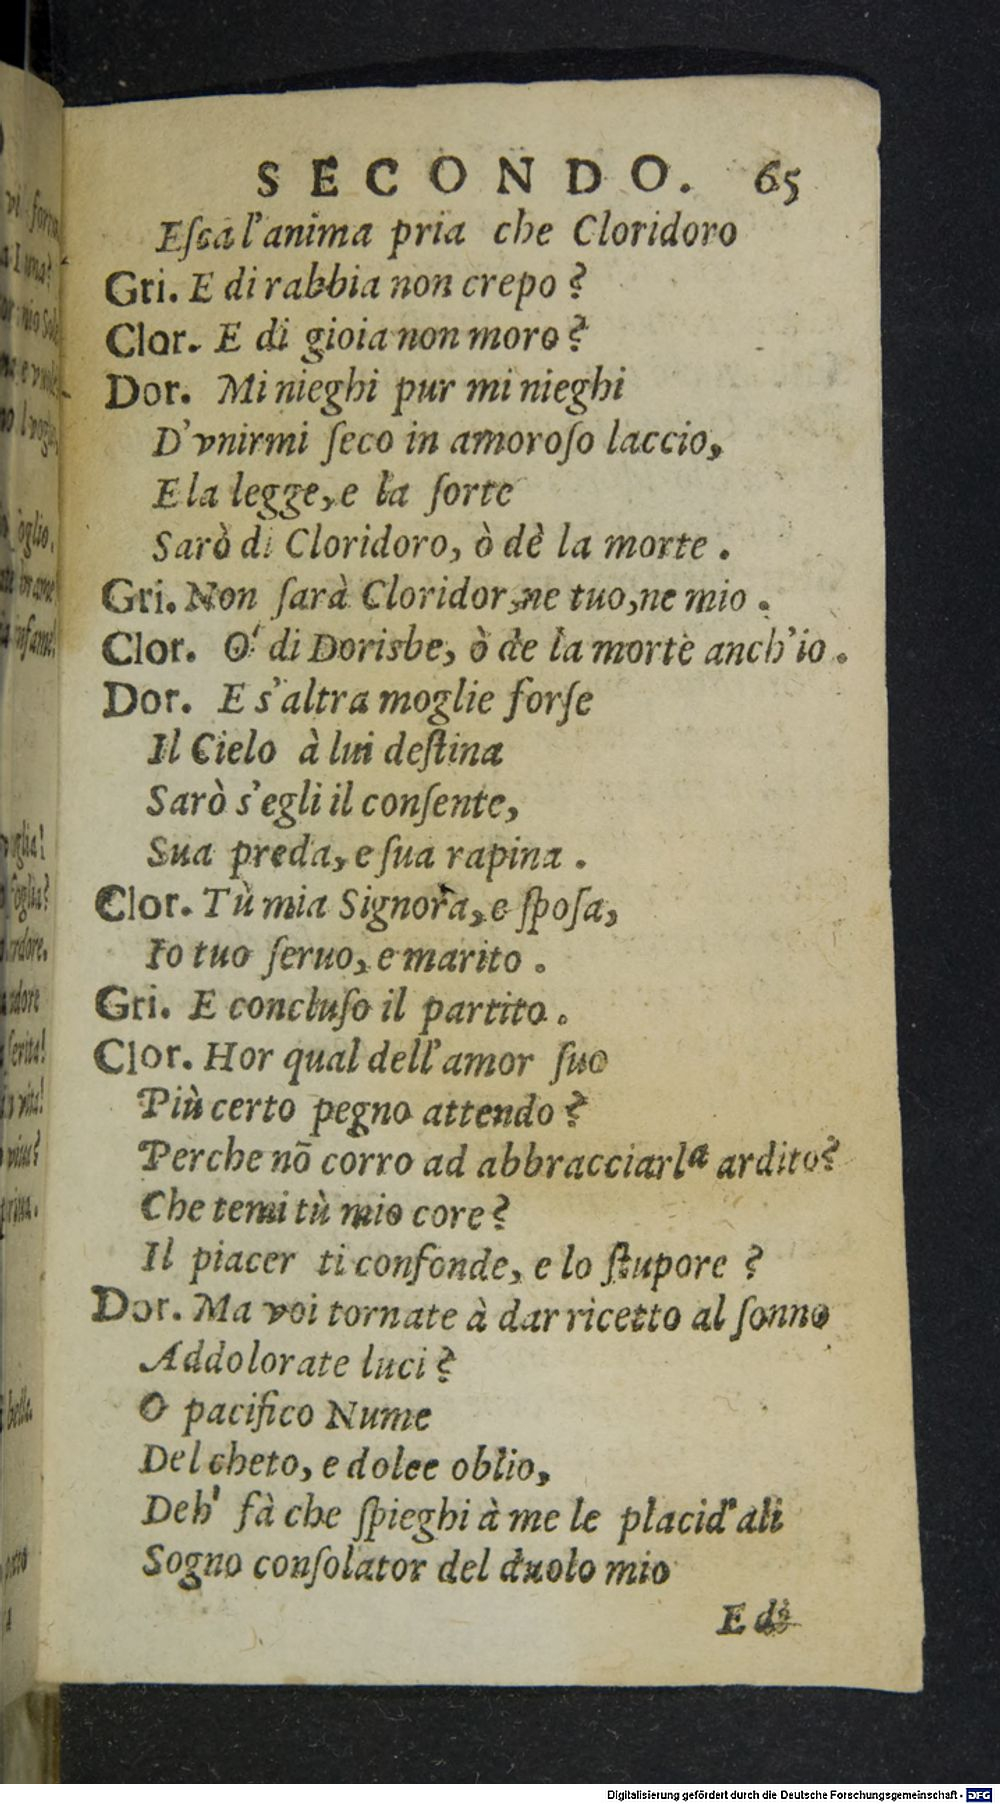 SECONDO. 65
Eſca l'anima pria che Cloridoro
Gri. E di rabbia non crepo?
Clor. E di gioia non moro?
Dor. Mi nieghi pur mi nieghi
D'vnirmi ſeco in amoroſo laccio,
E la legge, e la ſorte
Sarò di Cloridoro, ò dè la morte.
Gri. Non ſarà Cloridor, ne tuo, ne mio.
Clor. O' di Dorisbe, ò de la morte anch'io.
Dor. E s'altra moglie forſe
Il Cielo à lui deſtina
Sarò s'egli il conſente,
Sua preda, e ſua rapina.
Clor. Tù mia Signora, e ſpoſa,
Io tuo ſeruo, e marito.
Gri. E concluſo il partito.
Clor. Hor qual dell'amor ſuo
Più certo pegno attendo?
Perche nō corro ad abbracciarla ardito?
Che temi tù mio core?
Il piacer ti confonde, e lo ſtupore?
Dor. Ma voi tornate à dar ricetto al ſonno
Addolorate luci?
O pacifico Nume
Del cheto, e dolce oblio,
Deh' fà che ſpieghi à me le placid'ali
Sogno conſolator del duolo mio
E di
Digitalisierung gefördert durch die Deutsche Forschungsgemeinschaft - DFG